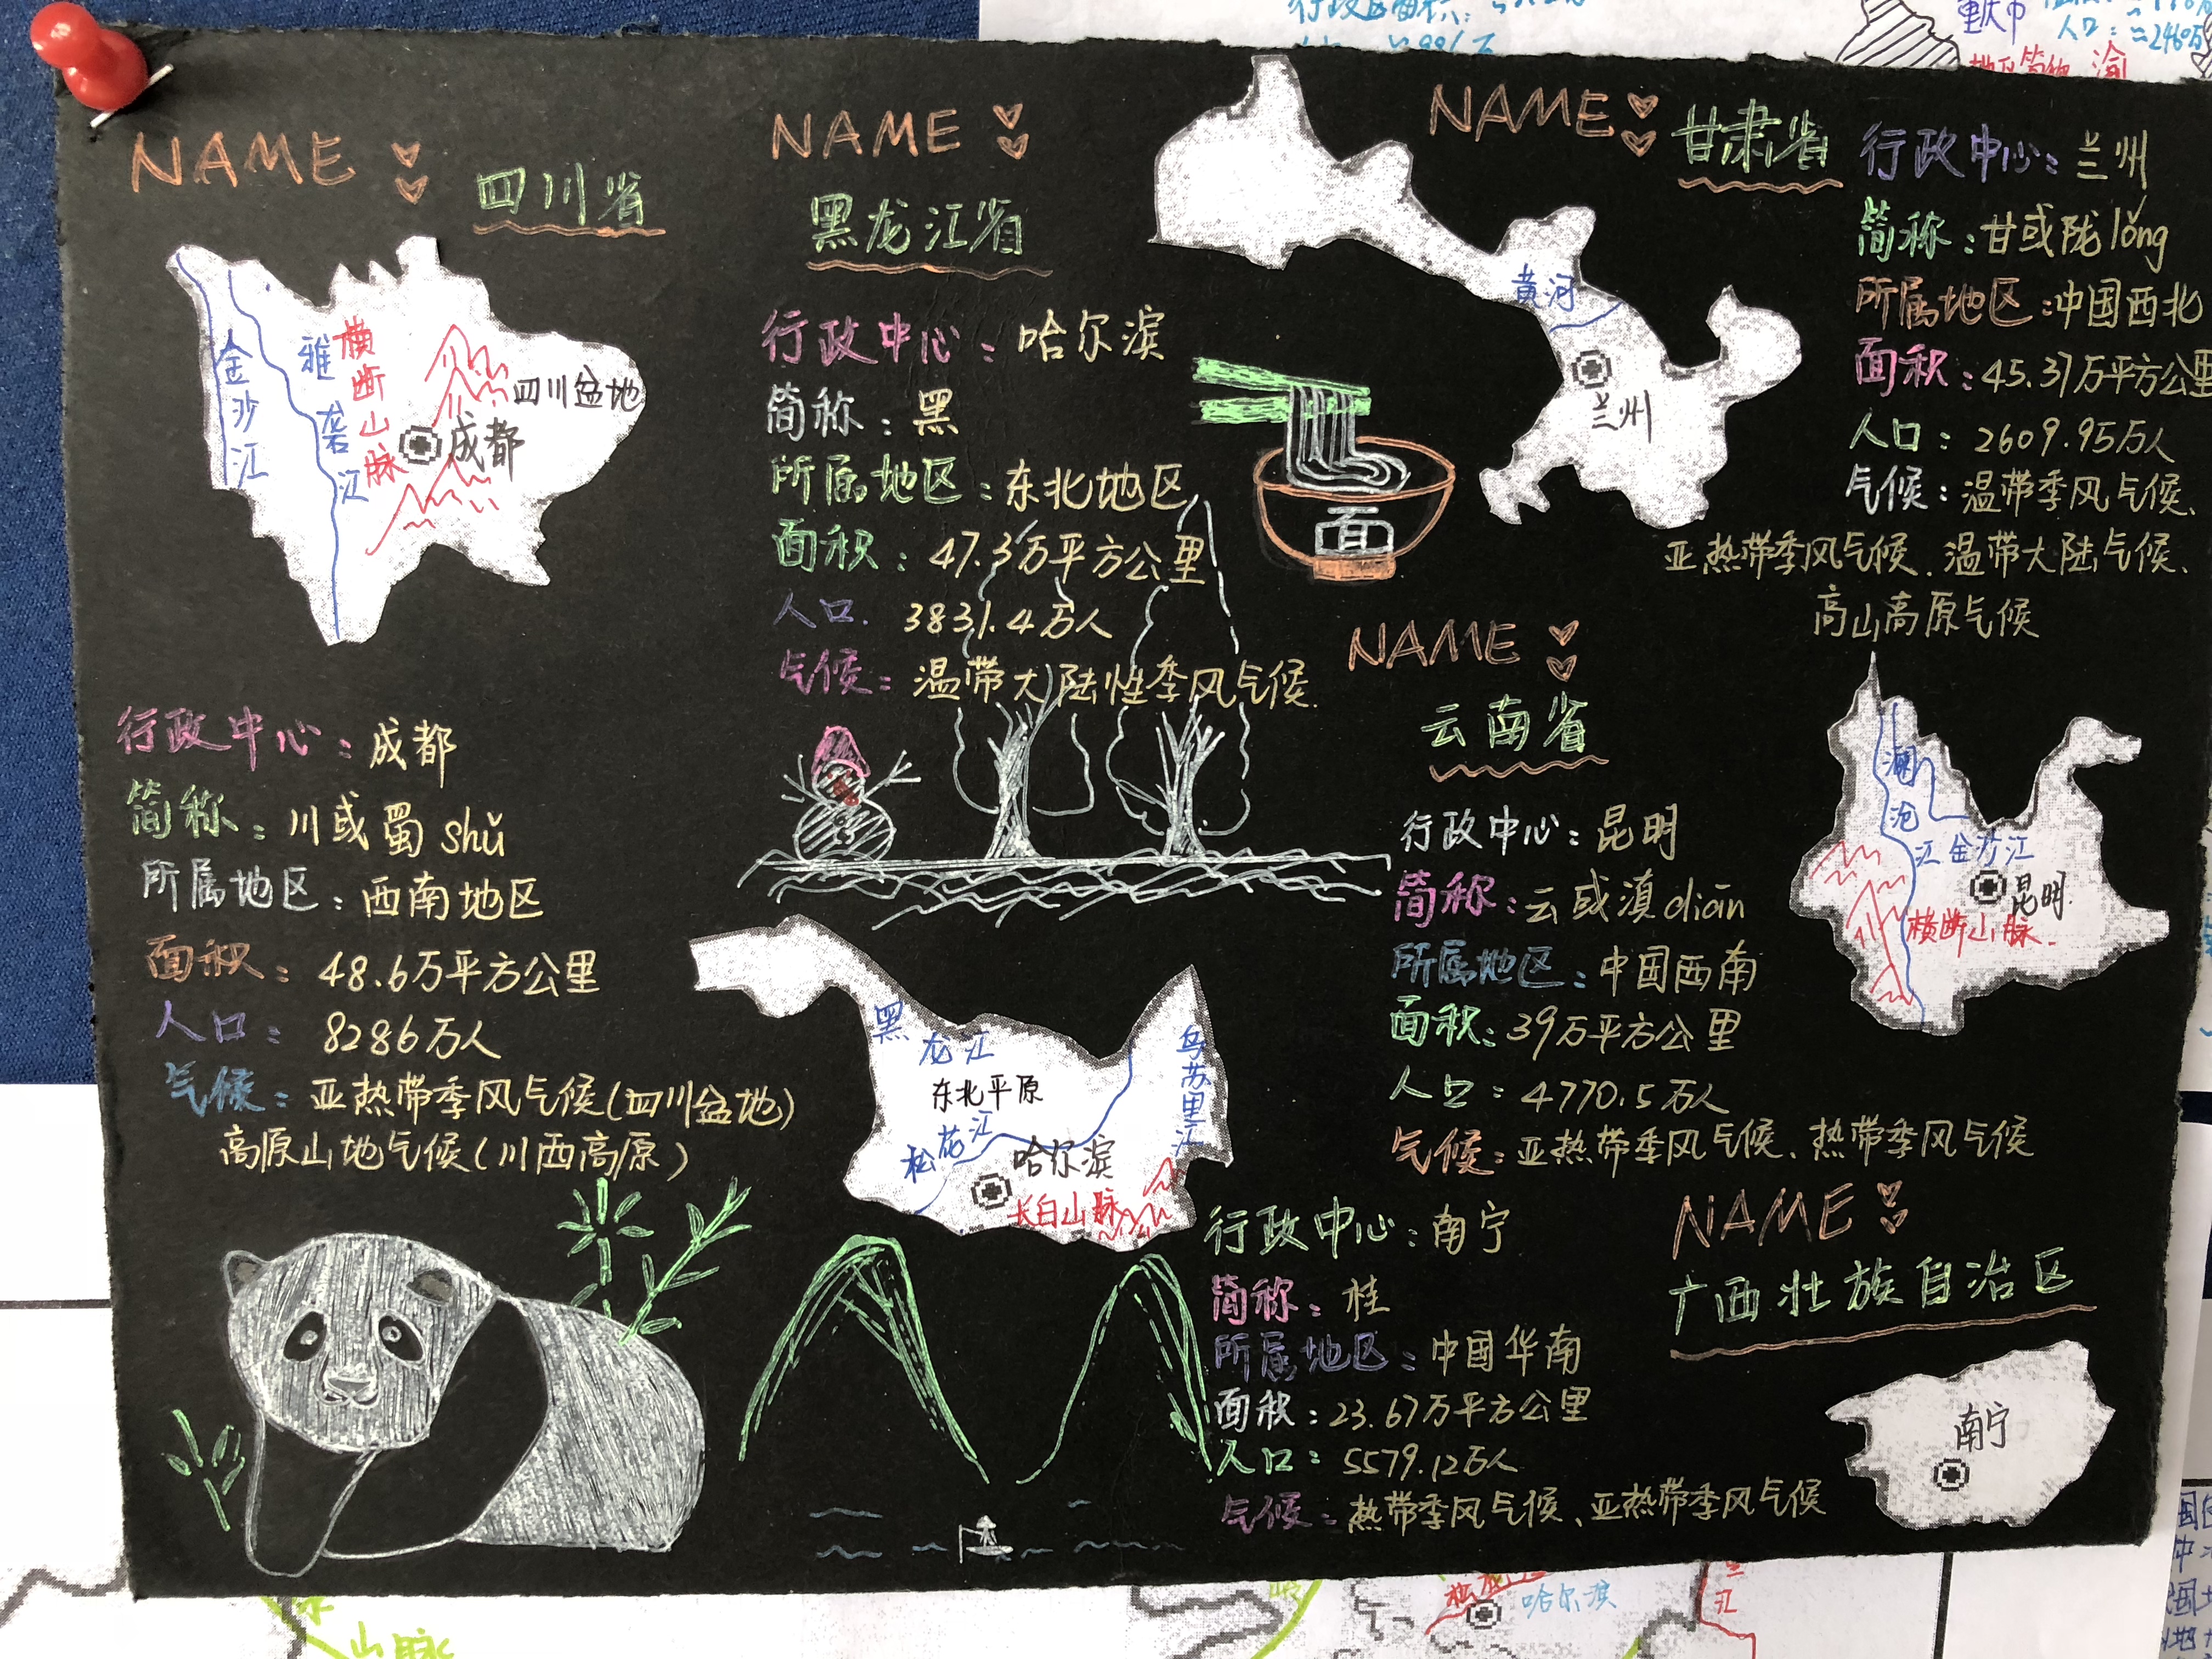 NAME
四川省
金沙江
雅砻江
横断山脉
四川盆地
成都
行政中心：成都
简称：川或蜀 shǔ
所属地区：西南地区
面积：48.6万平方公里
人口：8286万人
气候：亚热带季风气候(四川盆地)
高原山地气候(川西高原)
NAME
黑龙江省
行政中心：哈尔滨
简称：黑
所属地区：东北地区
面积：47.3万平方公里
人口. 3831.4万人
气候：温带大陆性季风气候.
黑龙江
东北平原
乌苏里江
松花江
哈尔滨
长白山脉
NAME
甘肃省
黄河
兰州
面
行政中心：兰州
简称：甘或陇lǒng
所属地区：中国西北
面积：45.37万平方公里
人口：2609.95万人
气候：温带季风气候、
亚热带季风气候、温带大陆气候、
高山高原气候
NAME
云南省
行政中心：昆明
简称：云或滇diān
所属地区：中国西南
面积：39万平方公里
人口：4770.5万人
气候：亚热带季风气候、热带季风气候
澜沧江
金沙江
昆明
横断山脉
NAME
广西壮族自治区
行政中心：南宁
简称：桂
所属地区：中国华南
面积：23.67万平方公里
人口：5579.12万人
气候：热带季风气候、亚热带季风气候
南宁
重庆市
人口：≈2460万
渝
山脉
哈尔滨
江